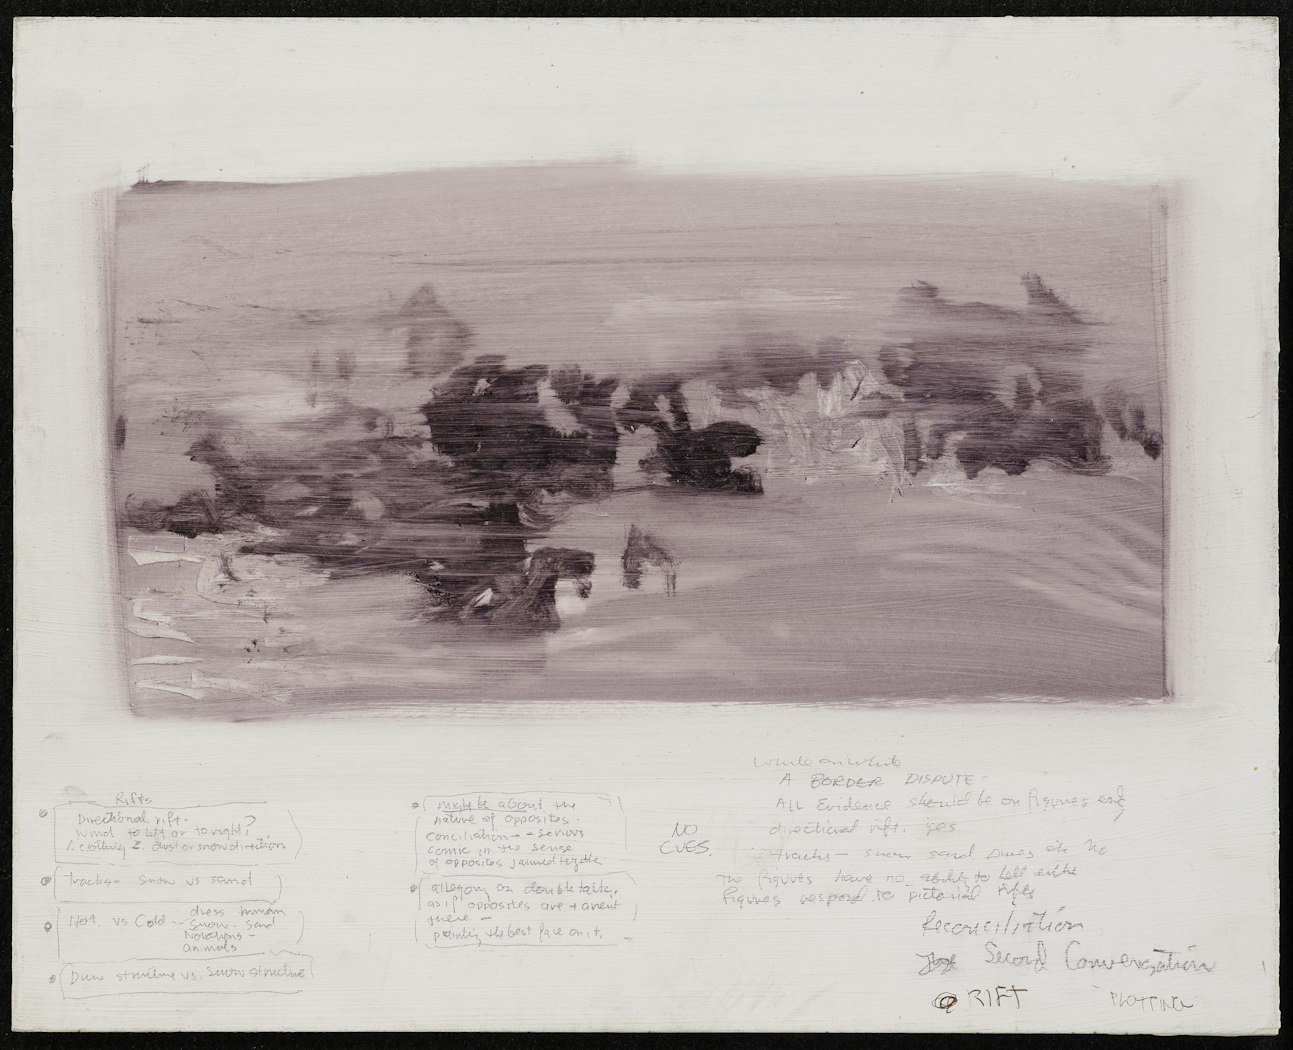 Rifts
Directional rift-
wind to left or to right?
1. clothing 2. dust or snow direction
Tracks- snow vs sand
Hot vs Cold - dress human
snow - sand
animals
Dune structure vs. snow structure
might be about the
nature of opposites.
conciliation - - serious
comic in the sense
of opposites jammed together
allegory on double talk,
as if opposites are + arent
there -
painting the best face on it.
NO
CUES.
white on white
A BORDER DISPUTE -
ALL Evidence should be on figures
directional rift. yes
tracks - snow sand dunes etc no
The figures have no ability to tell either
figures respond to pictorial rifts
Reconciliation
Second Conversation
RIFT
PLOTTING